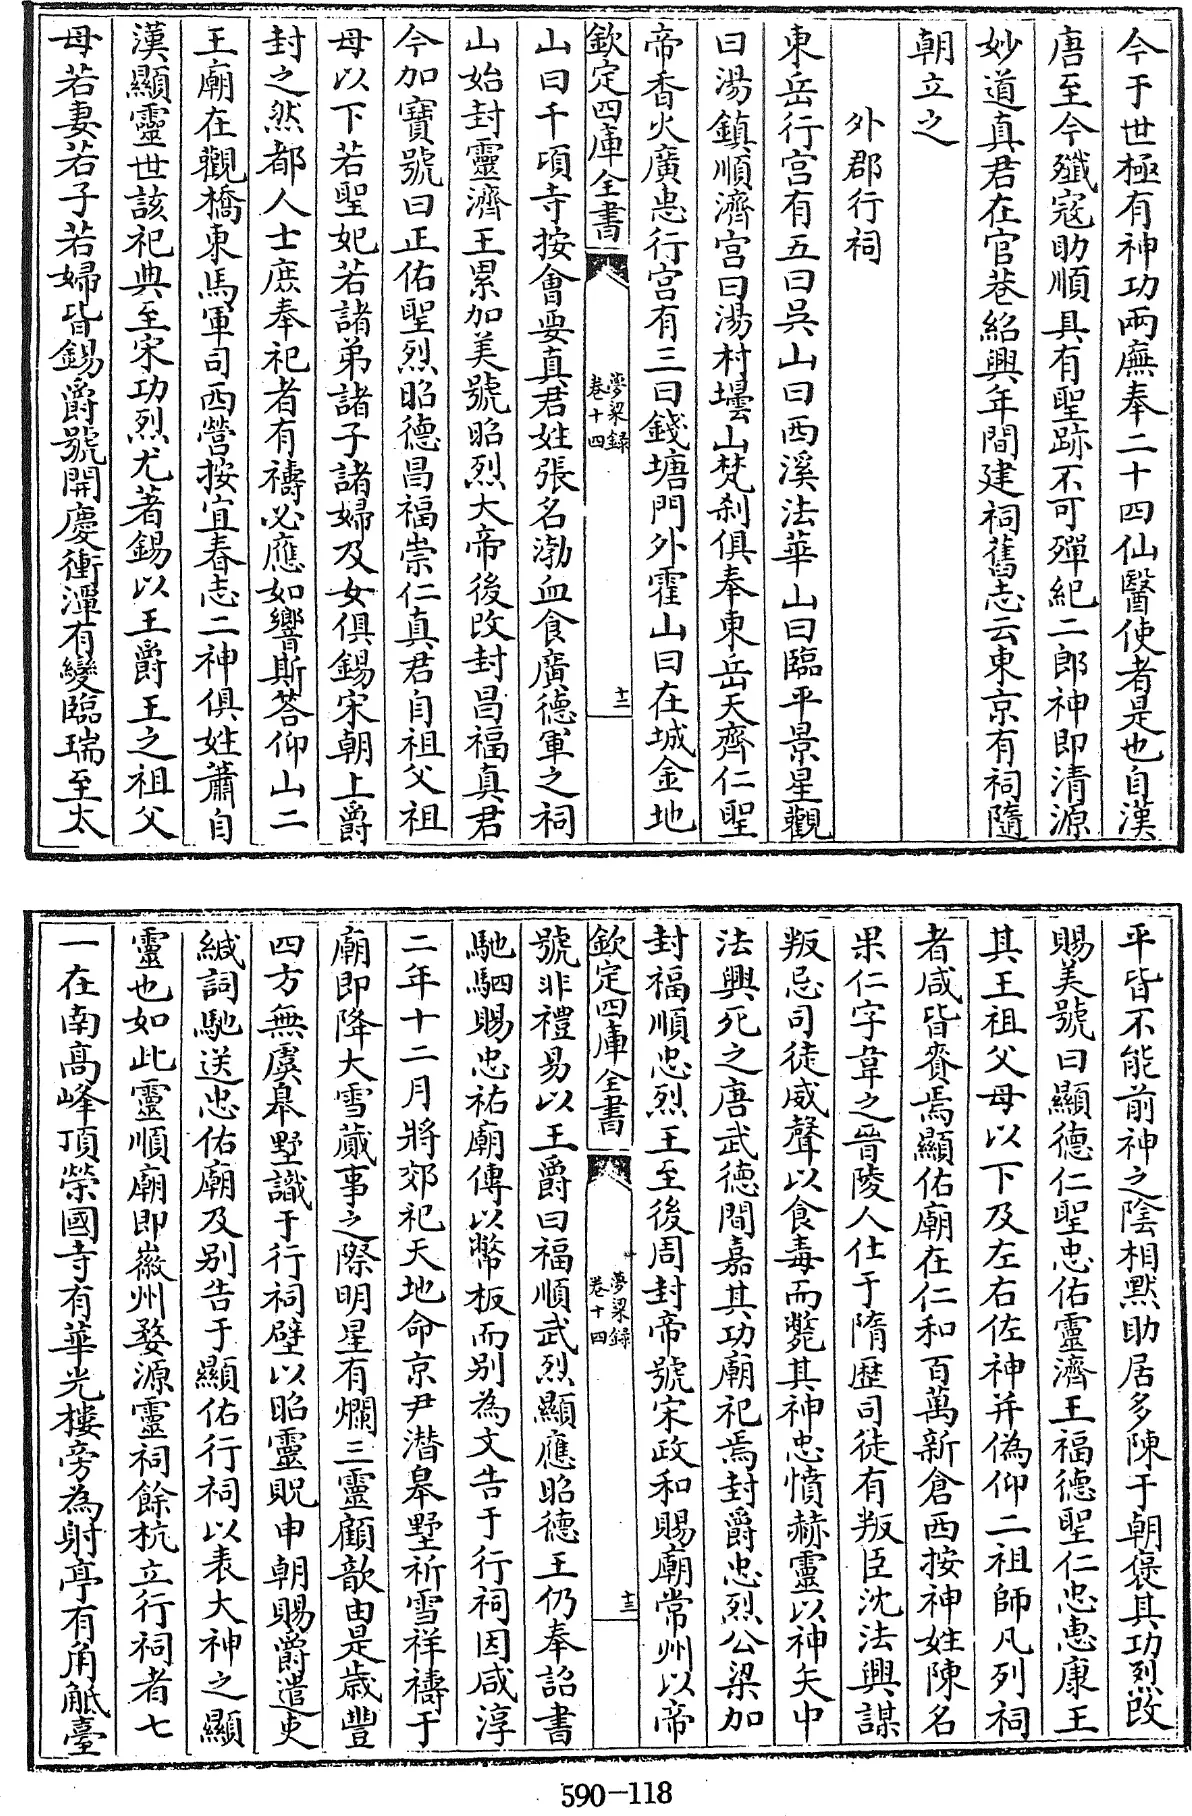 今于世極有神功兩廡奉二十四仙醫使者是也自漢
唐至今殲寇助順具有聖跡不可殫紀二郎神即清源
妙道真君在官巷紹興年間建祠舊志云東京有祠隨
朝立之
外郡行祠
東岳行宫有五曰吳山曰西溪法華山曰臨平景星觀
曰湯鎮順濟宫曰湯村壜山梵刹俱奉東岳天齊仁聖
帝香火廣惠行宫有三曰錢塘門外霍山曰在城金地
欽定四庫全書
夢粱録
卷十四
十二
山曰千頃寺按會要真君姓張名渤血食廣德軍之祠
山始封靈濟王累加美號昭烈大帝後改封昌福真君
今加寶號曰正佑聖烈昭德昌福崇仁真君自祖父祖
母以下若聖妃若諸弟諸子諸婦及女俱錫宋朝上爵
封之然都人士庶奉祀者有禱必應如響斯答仰山二
王廟在觀橋東馬軍司西營按宜春志二神俱姓蕭自
漢顯靈世該祀典至宋功烈尤著錫以王爵王之祖父
母若妻若子若婦皆錫爵號開慶衝潭有變臨瑞至太
平皆不能前神之陰相默助居多陳于朝襃其功烈改
賜美號曰顯德仁聖忠佑靈濟王福德聖仁忠惠康王
其王祖父母以下及左右佐神并偽仰二祖師凡列祠
者咸皆賚焉顯佑廟在仁和百萬新倉西按神姓陳名
果仁字韋之晉陵人仕于隋歷司徒有叛臣沈法興謀
叛忌司徒威聲以食毒而斃其神忠憤赫靈以神矢中
法興死之唐武德間嘉其功廟祀焉封爵忠烈公梁加
封福順忠烈王至後周封帝號宋政和賜廟常州以帝
欽定四庫全書
夢粱録
卷十四
十三
號非禮易以王爵曰福順武烈顯應昭德王仍奉詔書
馳駟賜忠祐廟傳以幣板而别為文告于行祠因咸淳
二年十二月將郊祀天地命京尹潜皋墅祈雪祥禱于
廟即降大雪蕆事之際明星有爛三靈顧歆由是歳豐
四方無虞皋墅識于行祠壁以昭靈貺申朝賜爵遣吏
緘詞馳送忠佑廟及别告于顯佑行祠以表大神之顯
靈也如此靈順廟即徽州婺源靈祠餘杭立行祠者七
一在南髙峰頂榮國寺有華光樓旁為射亭有角觝臺
590-118